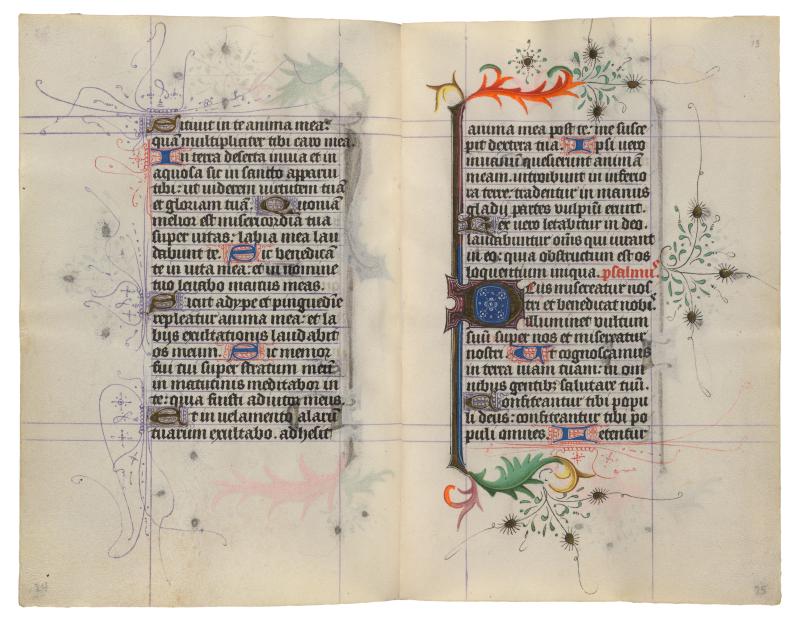 Sitiuit in te anima mea:
quā multipliciter tibi caro mea.
In terra deserta inuia et in
aquosa sic in sancto apparui
tibi: ut viderem virtutem tuā
et gloriam tuā. Quoniā
melior est misericordia tua
super vitas: labia mea lau
dabunt te. Sic benedicā
te in vita mea: et in nomine
tuo leuabo manus meas.
Sicut adype et pinguedīe
repleatur anima mea: et la
bijs exultationis laudabit
os meum. Sic memor
fui tui super stratum meū
in matutinis meditabor in
te: quia fuisti adiutor meus.
Et in velamento alarū
tuarum exultabo. adhesit
13
anima mea post te: me susce
pit dextera tua. Ipsi vero
in uanū quesierunt animā
meam. introibunt in inferio
ra terre: tradentur in manus
gladij partes vulpiū erunt.
Rex vero letabitur in deo.
laudabuntur oms qui iurant
in eo: quia obstructum est os
loquentium iniqua. psalmus
Deus misereatur nos
tri et benedicat nobis
illuminet vultum
suū super nos et misereatur
nostri. Ut cognoscamus
in terra viam tuam: in om
nibus gentib; salutare tuū.
Confiteantur tibi popu
li deus: confiteantur tibi po
puli omnes. Letentur
24
25